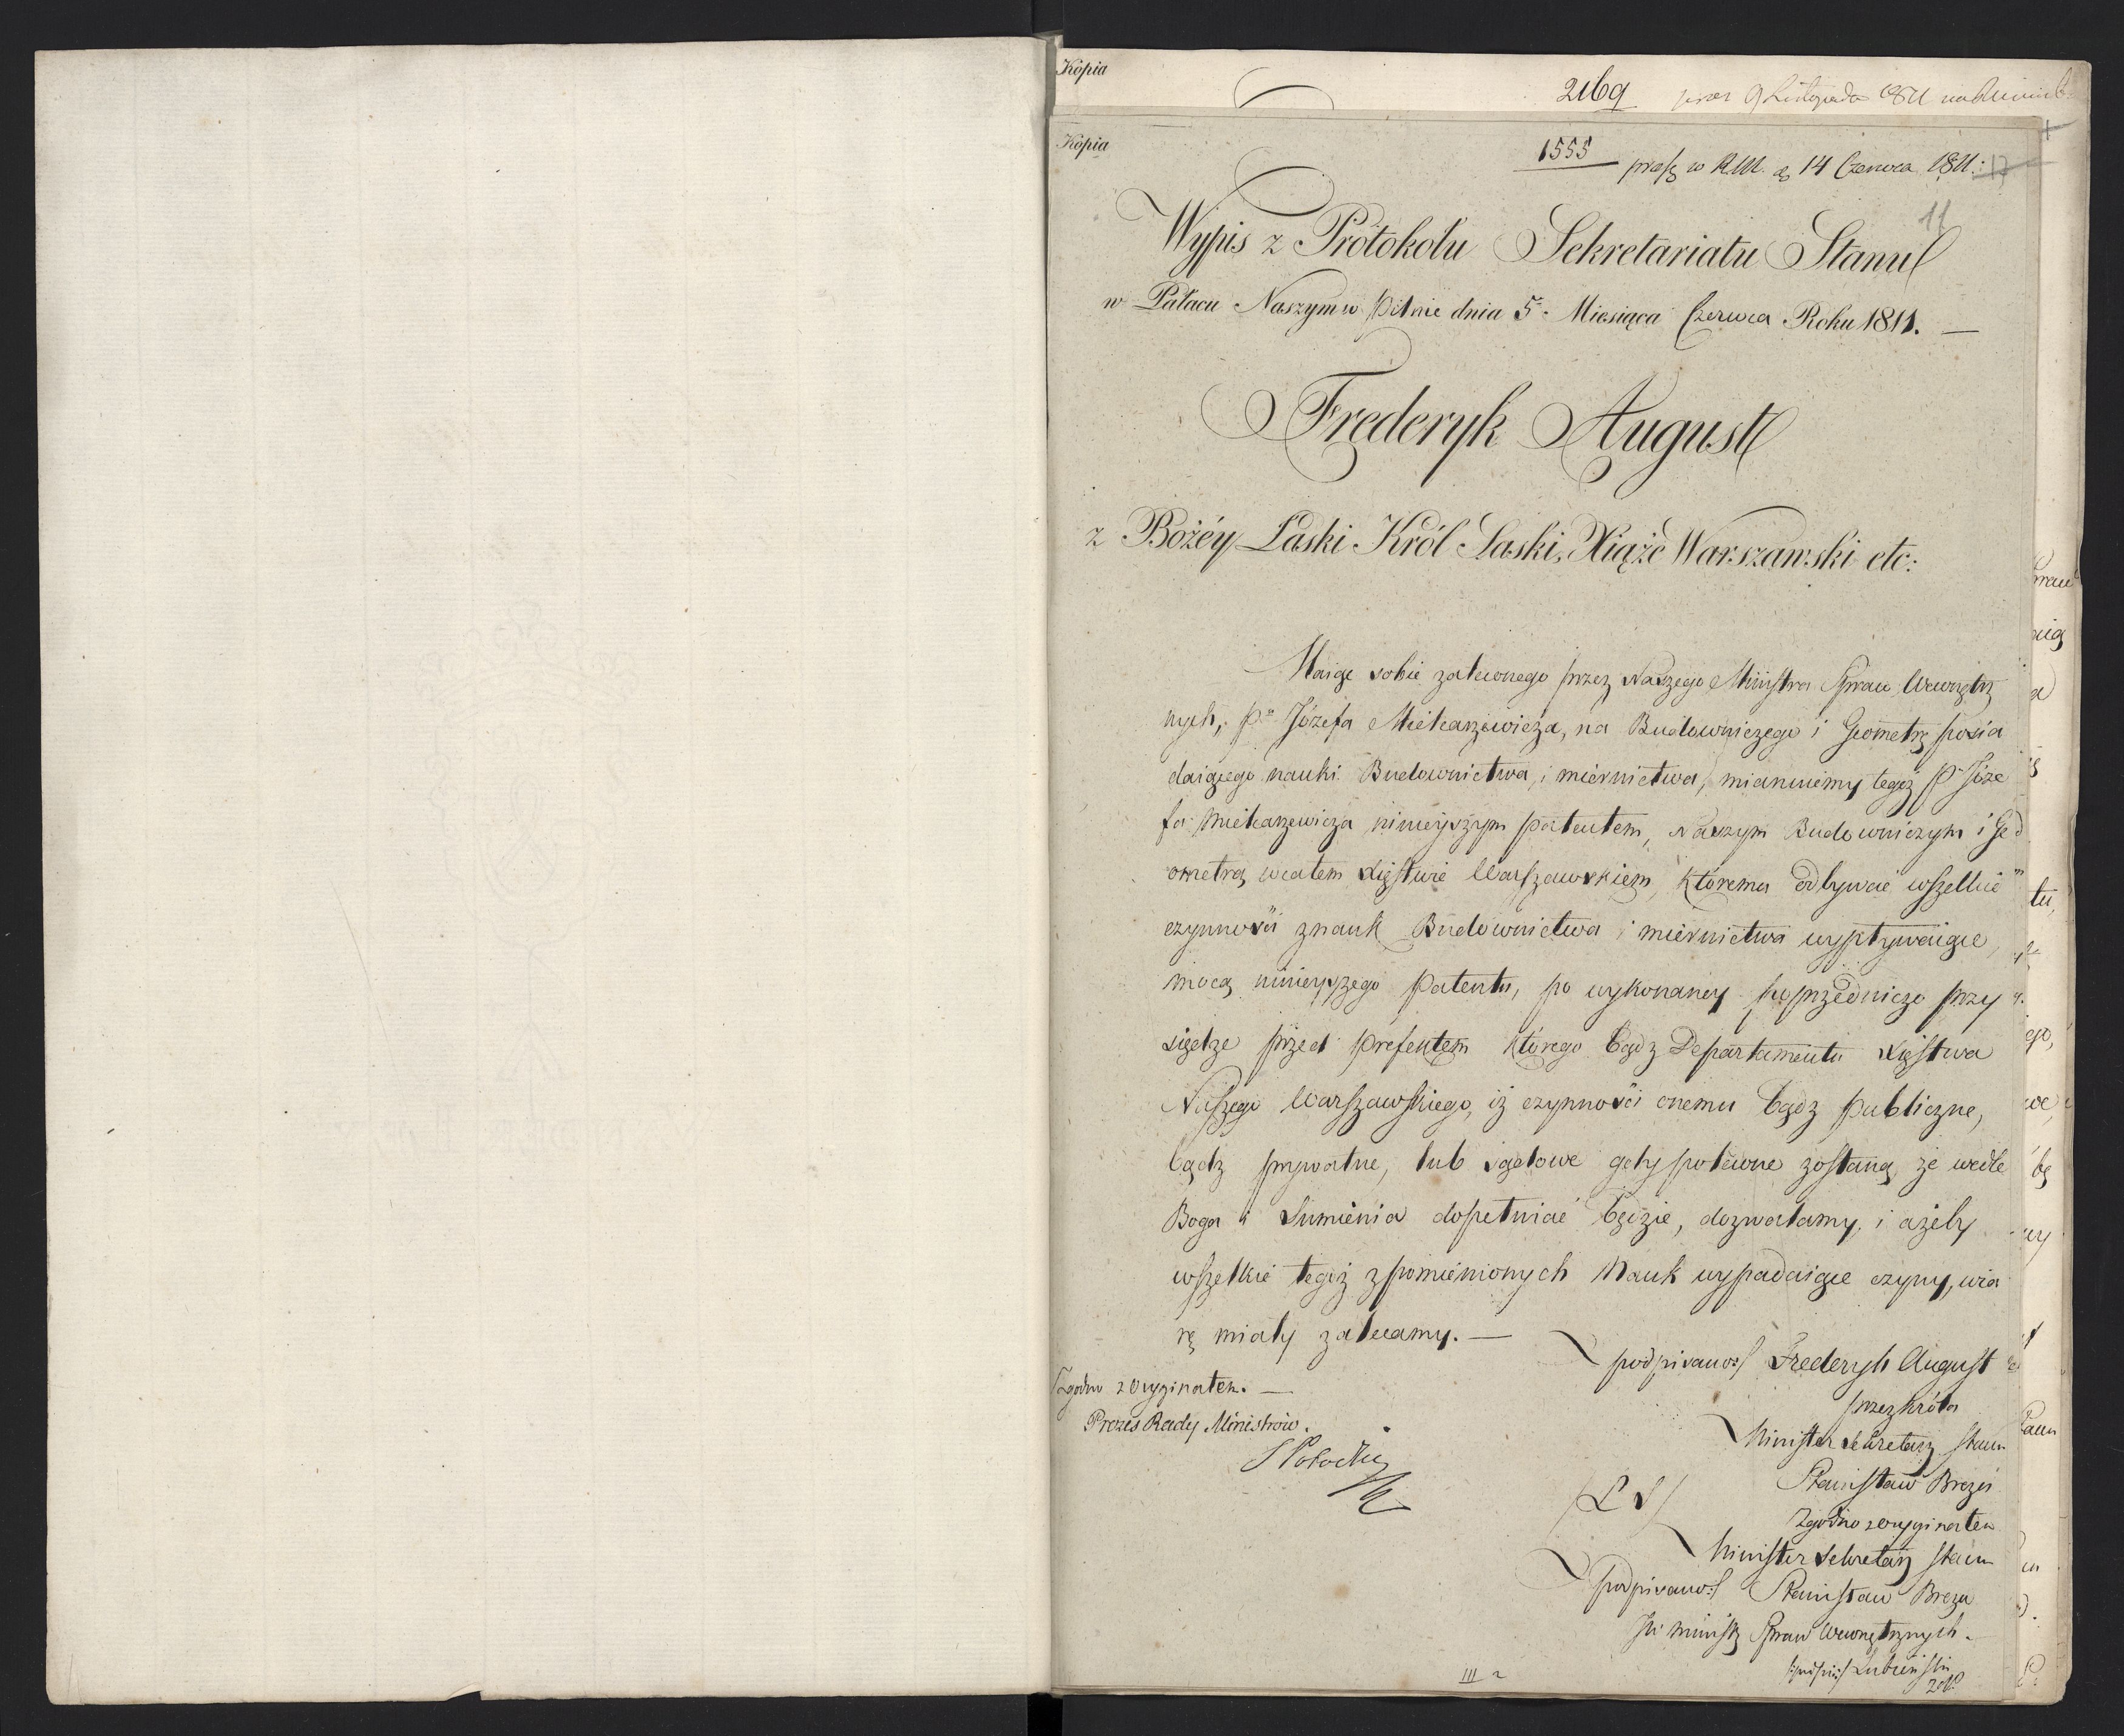 Kopia
2169 prez 9 Listopada 1811
Kopia
1555 presz w R.M. d. 14 Czerwca 1811.
11
Wypis z Protokołu Sekretariatu Stanu
w Pałacu Naszym w Pilnie dnia 5. Miesiąca Czerwca Roku 1811. —
Frederyk August
z Bożéy Łaski Król Saski, Xiąże Warszawski etc:
Maiąc sobie zaleconego przez Naszego Ministra Spraw Wewnętrz
nych, Pa Józefa Mielcarzewicza, na Budowniczego i Geometrę posia
daiącego nauki Budownictwa, i miernictwa, mianuiemy tegoż Pa Józe
fa Mielcarzewicza ninieyszym patentem, Naszym Budowniczym i Ge
ometrą wcałem Xięstwie Warszawskiem, któremu odbywać wszelkie
czynności znauk Budownictwa i miernictwa wypływaiące,
mocą ninieyszego Patentu, po wykonaney poprzedniczo przy
siędze przed Prefektem którego bądz Departamentu Xięstwa
Naszego Warszawskiego, iż czynności onemu bądz publiczne,
bądz prywatne, lub sądowe gdy polecone zostaną, że wedle
Boga i Sumienia dopełniać będzie, dozwalamy, i ażeby
wszelkie tegoż zpomienionych Nauk wypadaiące czyny, wia
rę miały zalecamy. —
podpisano:/ Frederyk August
Zgodno z Oryginałem. —
przez króla
Prezes Rady Ministrów.
Minister Sekretarz Stanu
S Potocki
Stanisław Breza
/L S/
Zgodno z oryginałem
Minister Sekretarz Stanu
podpisano:/ Stanisław Breza
Za Ministra Spraw Wewnętrznych.
/:podpis:/ Łubieński